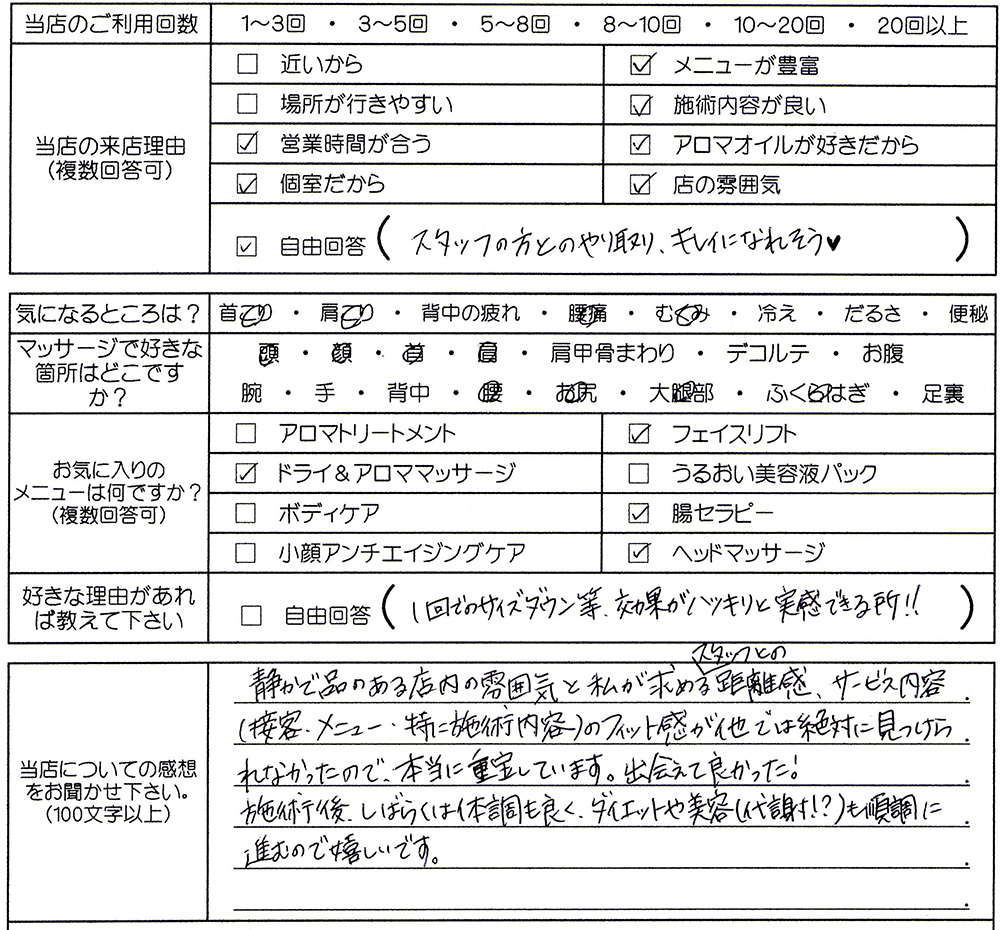 当店のご利用回数 1～3回 ・ 3～5回 ・ 5～8回 ・ 8～10回 ・ 10～20回 ・ 20回以上
当店の来店理由
(複数回答可)
□ 近いから ☑ メニューが豊富
□ 場所が行きやすい ☑ 施術内容が良い
☑ 営業時間が合う ☑ アロマオイルが好きだから
☑ 個室だから ☑ 店の雰囲気
☑ 自由回答 (スタッフの方とのやり取り、キレイになれそう♥)
気になるところは？ 首こり ・ 肩こり ・ 背中の疲れ ・ 腰痛 ・ むくみ ・ 冷え ・ だるさ ・ 便秘
マッサージで好きな
箇所はどこです
か？
頭 ・ 顔 ・ 首 ・ 肩 ・ 肩甲骨まわり ・ デコルテ ・ お腹
腕 ・ 手 ・ 背中 ・ 腰 ・ お尻 ・ 大腿部 ・ ふくらはぎ ・ 足裏
お気に入りの
メニューは何ですか？
(複数回答可)
□ アロマトリートメント ☑ フェイスリフト
☑ ドライ＆アロママッサージ □ うるおい美容液パック
□ ボディケア ☑ 腸セラピー
□ 小顔アンチエイジングケア ☑ ヘッドマッサージ
好きな理由があれ
ば教えて下さい
□ 自由回答 (1回でのサイズダウン等、効果がハッキリと実感できる所!!)
当店についての感想
をお聞かせ下さい。
(100文字以上)
スタッフとの
静かで品のある店内の雰囲気と私が求める距離感、サービス内容
(接客・メニュー・特に施術内容)のフィット感が他では絶対に見つけら
れなかったので、本当に重宝しています。出会えて良かった!
施術後、しばらくは体調も良く、ダイエットや美容(代謝!?)も順調に
進むので嬉しいです。